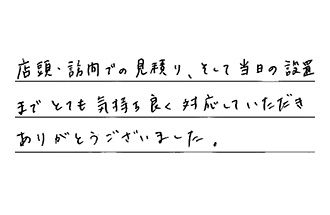 店頭・訪問での見積り、そして当日の設置
までとても気持ち良く対応していただき
ありがとうございました。